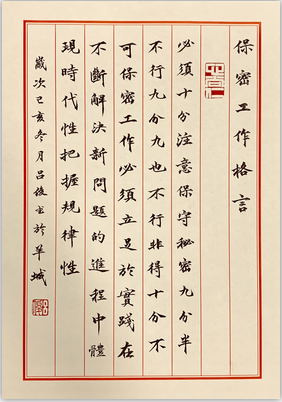 保密工作格言
必須十分注意保守秘密九分半
不行九分九也不行非得十分不
可保密工作必須立足於實踐在
不斷解決新問題的進程中體
現時代性把握規律性
歲次己亥冬月吕俊书於羊城